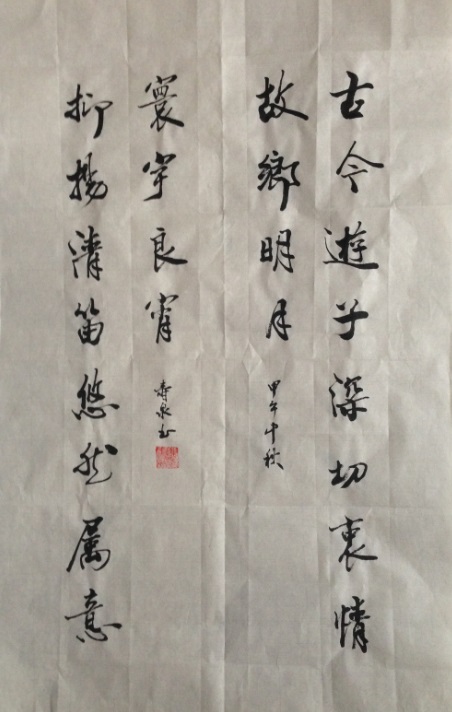 古今遊子深切衷情
故鄉明月
甲午中秋
抑揚清笛悠然属意
寰宇良宵
寿泉书